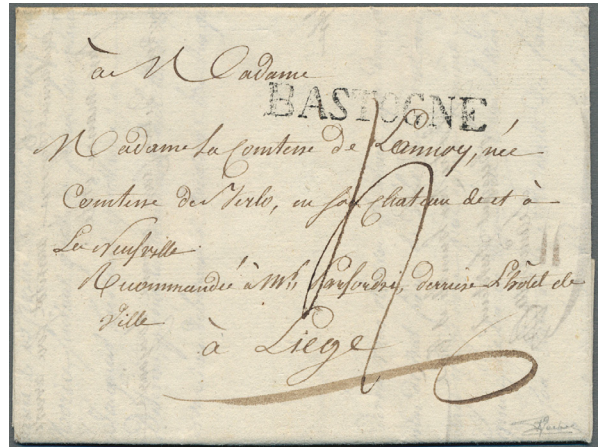 à Madame
BASTOGNE
Madame La Comtesse de Lannoy, née
Comtesse de Verlo, en son Chateau de et à
La Neufville.
Recommandée à Mr derriere L'hôtel de
Ville
à Liege